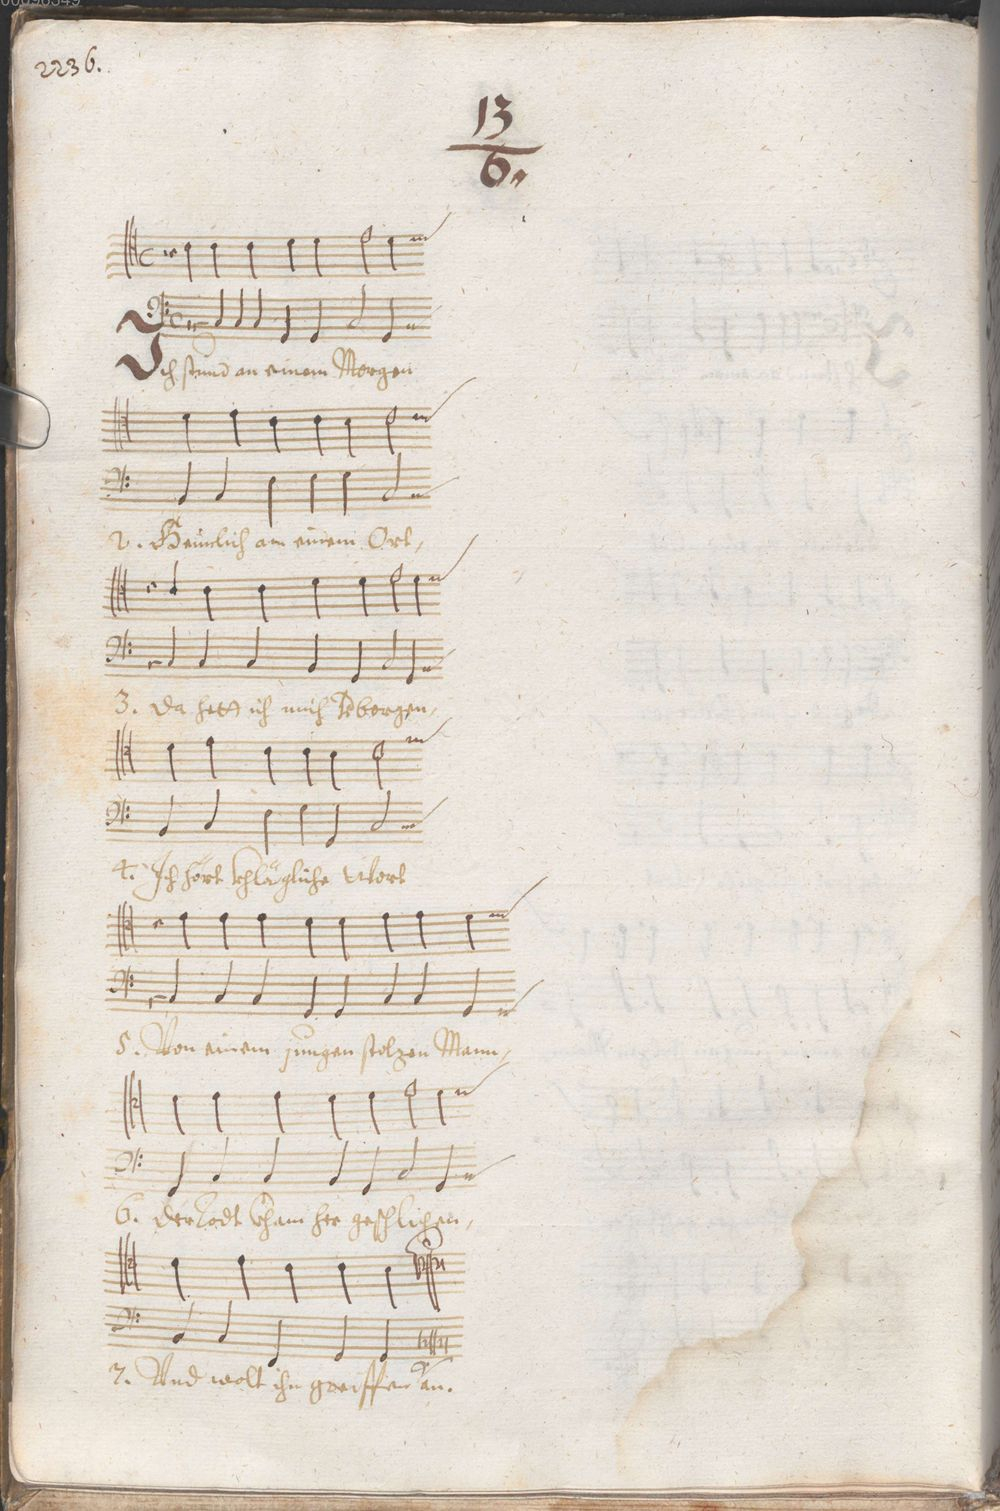 00098349
2236.
13
6.
Ich stund an einem Morgen
2. Heimlich an einem Ort,
3. Da hett ich mich verborgen,
4. Ich hört khlägliche Wort
5. Von einem jungen stolzen Mann,
6. Der Todt kham her geschlichen,
7. Und wolt ihn greiffen an.